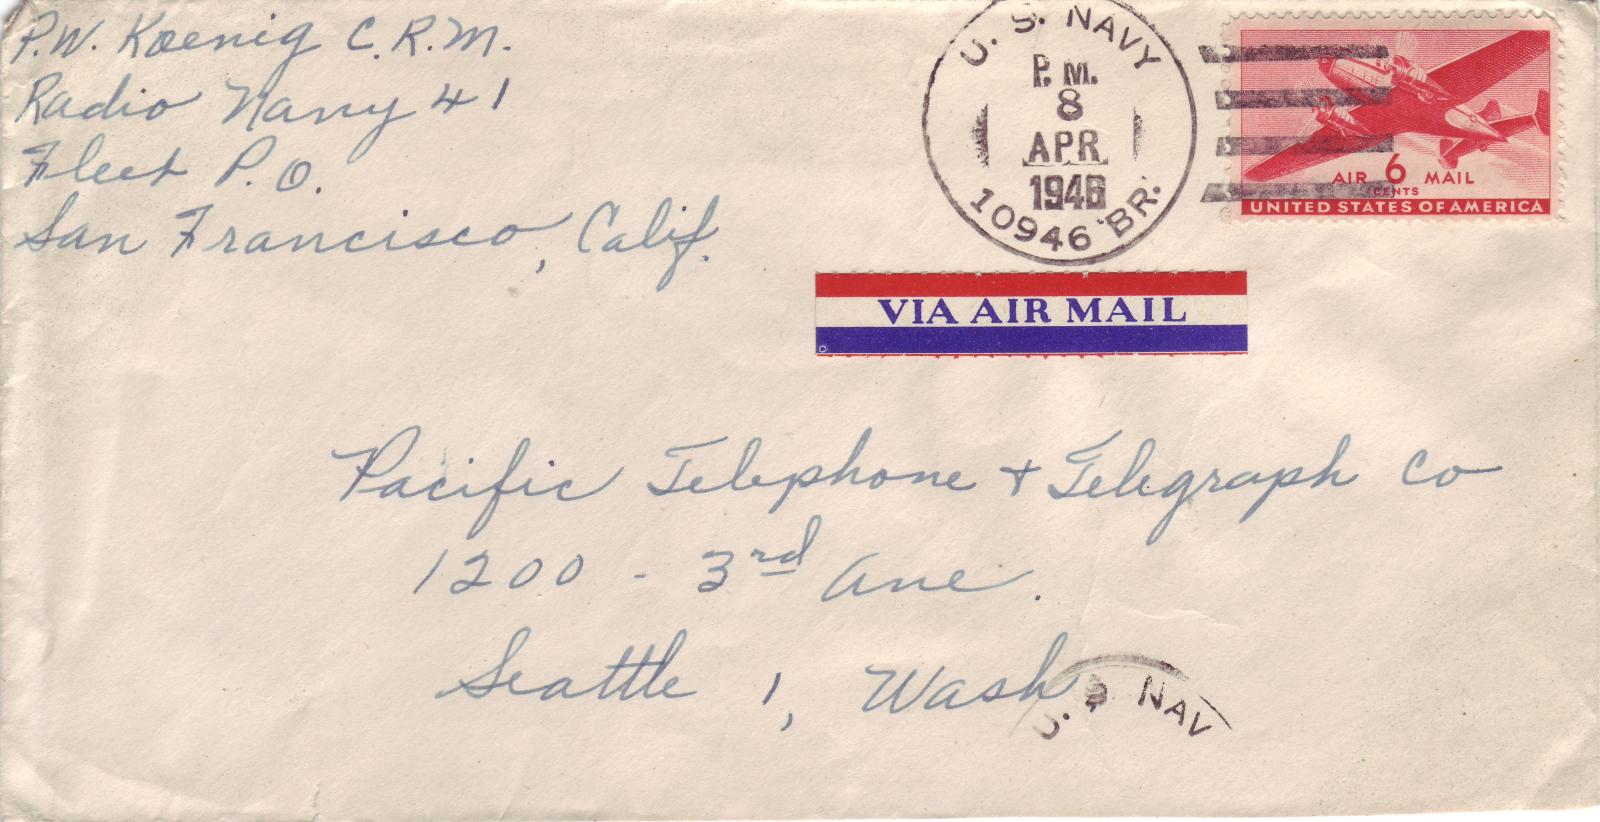 P.W. Koenig C.R.M.
Radio Navy 41
Fleet P.O.
San Francisco, Calif.
U. S. NAVY
P. M.
8
APR
1946
10946 BR.
AIR 6 MAIL
CENTS
UNITED STATES OF AMERICA
VIA AIR MAIL
Pacific Telephone + Telegraph Co
1200 - 3rd Ave.
Seattle 1, Wash
U. S NAV